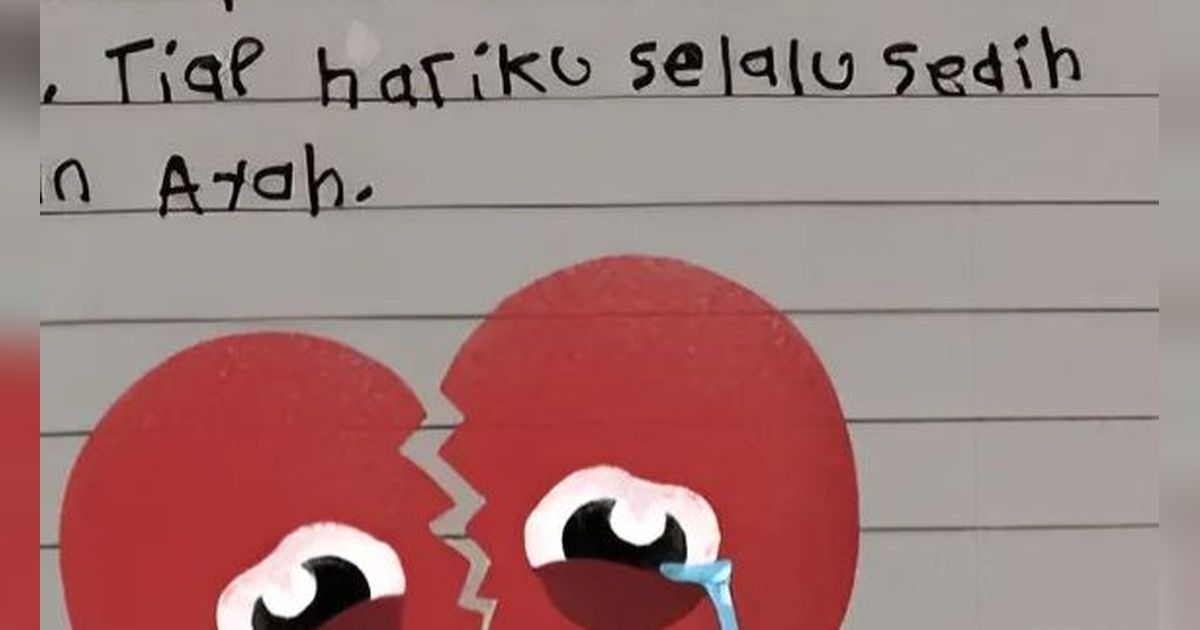 . Tiap hariku selalu sedih
n Ayah.